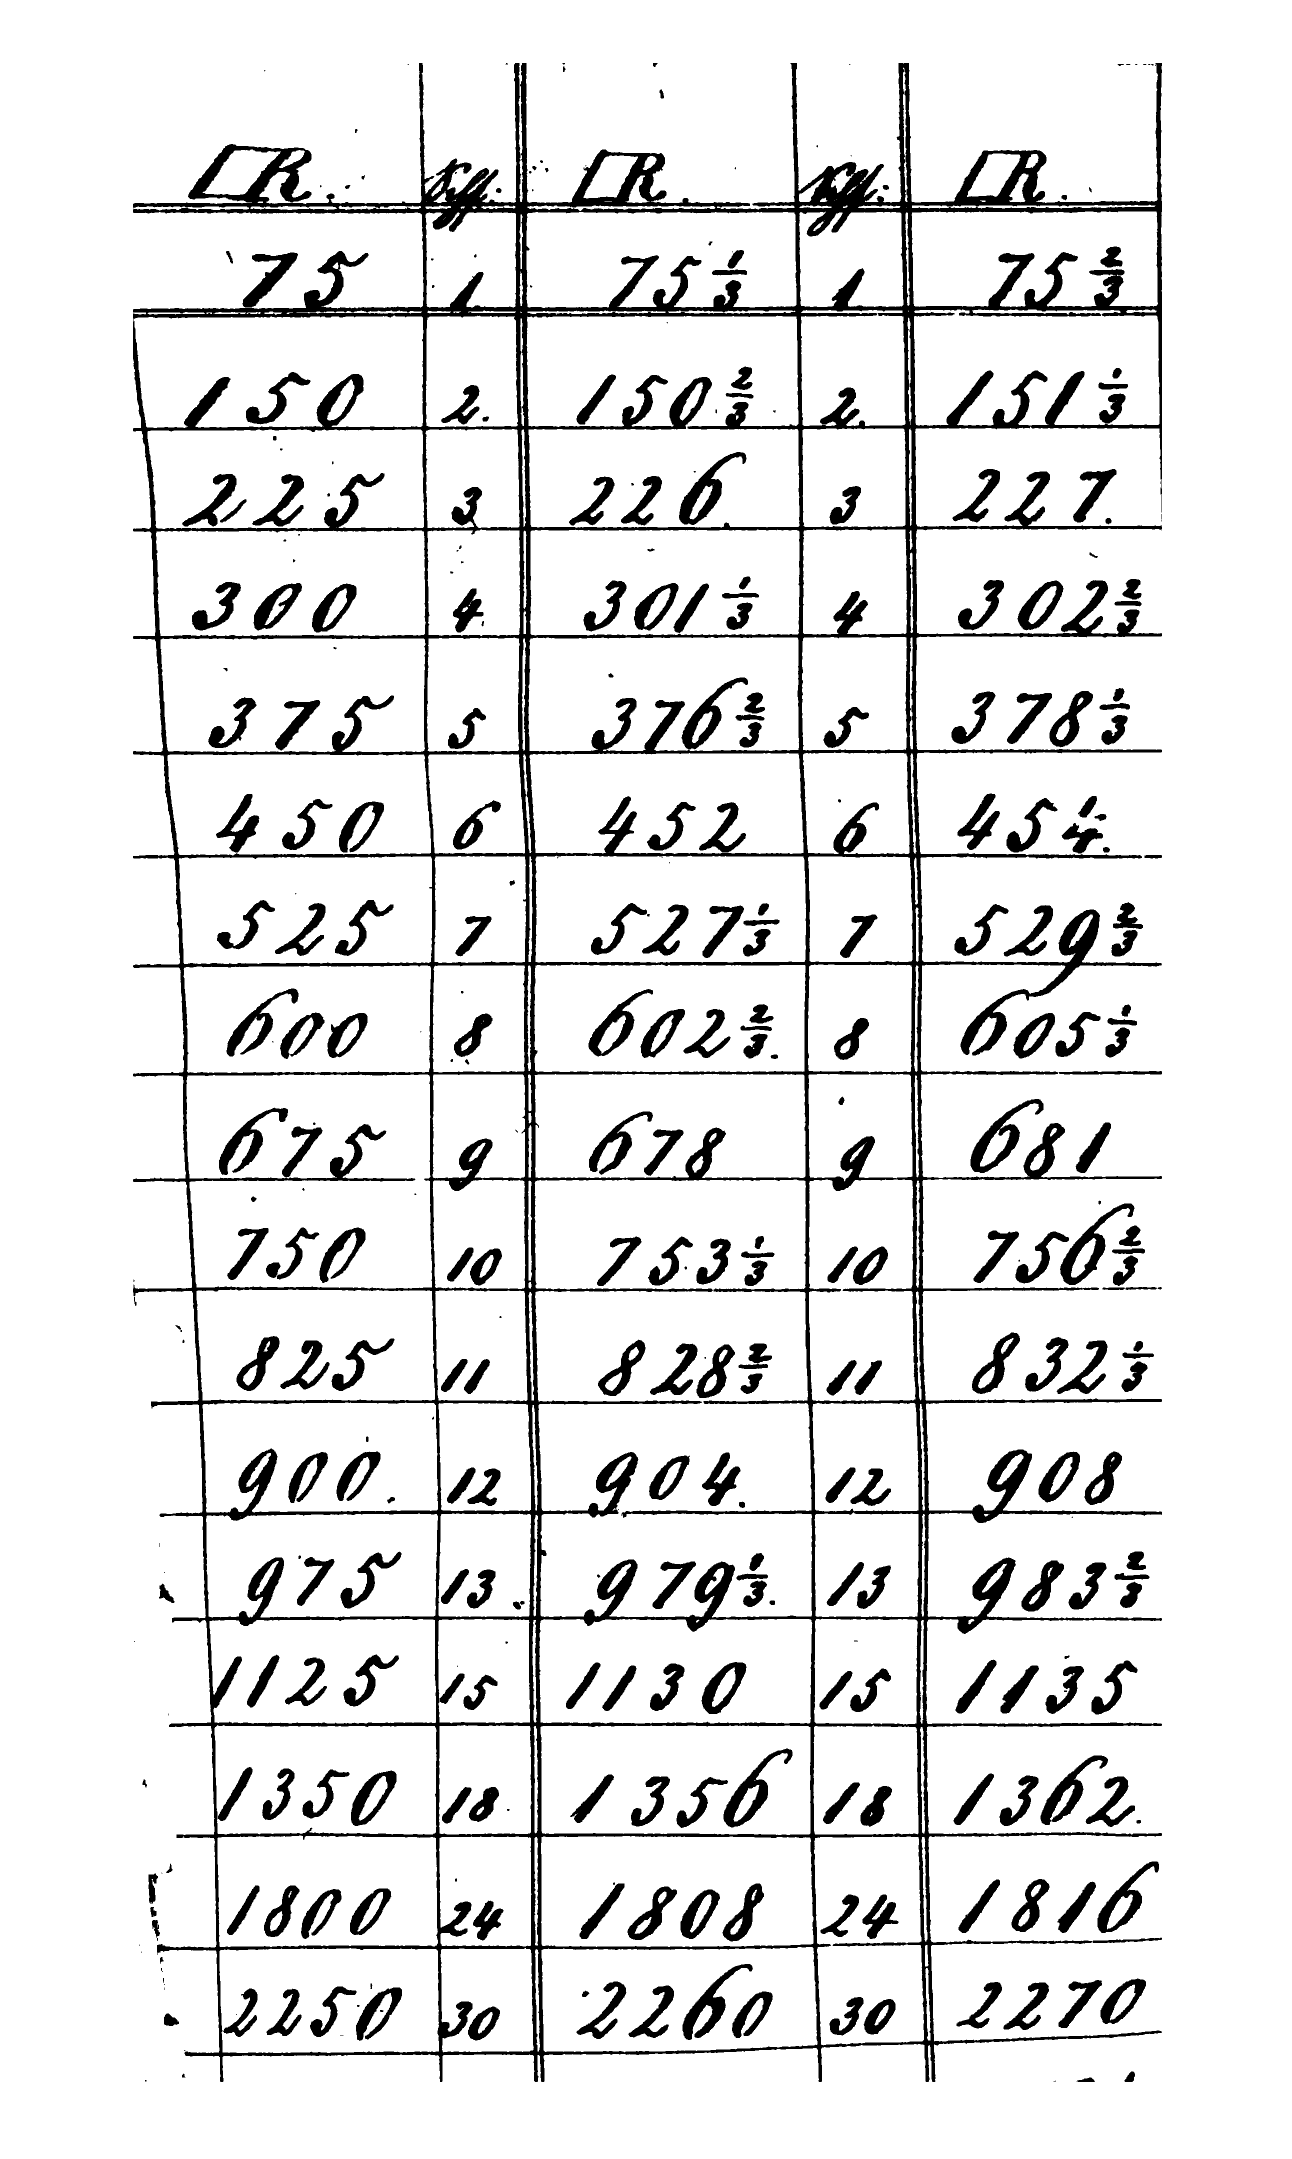 □R. □R. □R.
75 1 75 1/3 1 75 2/3
150 2. 150 2/3 2. 151 1/3
225 3 226. 3 227.
300 4 301 1/3 4 302 2/3
375 5 376 2/3 5 378 1/3
450 6 452 6 454.
525 7 527 1/3 7 529 2/3
600 8 602 2/3. 8 605 1/3
675 9 678 9 681
750 10 753 1/3 10 756 2/3
825 11 828 2/3 11 832 1/3
900. 12 904. 12 908
975 13. 979 1/3. 13 983 2/3
1125 15 1130 15 1135
1350 18 1356 18 1362.
1800 24 1808 24 1816
2250 30 2260 30 2270